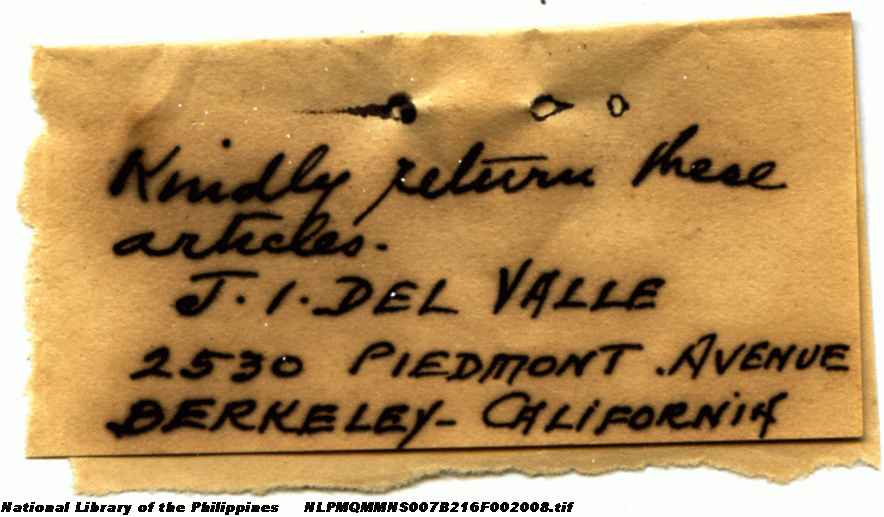 Kindly return these
articles.
J. I. DEL VALLE
2530 PIEDMONT AVENUE
BERKELEY - CALIFORNIA
National Library of the Philippines NLPMQMMNS007B216F002008.tif